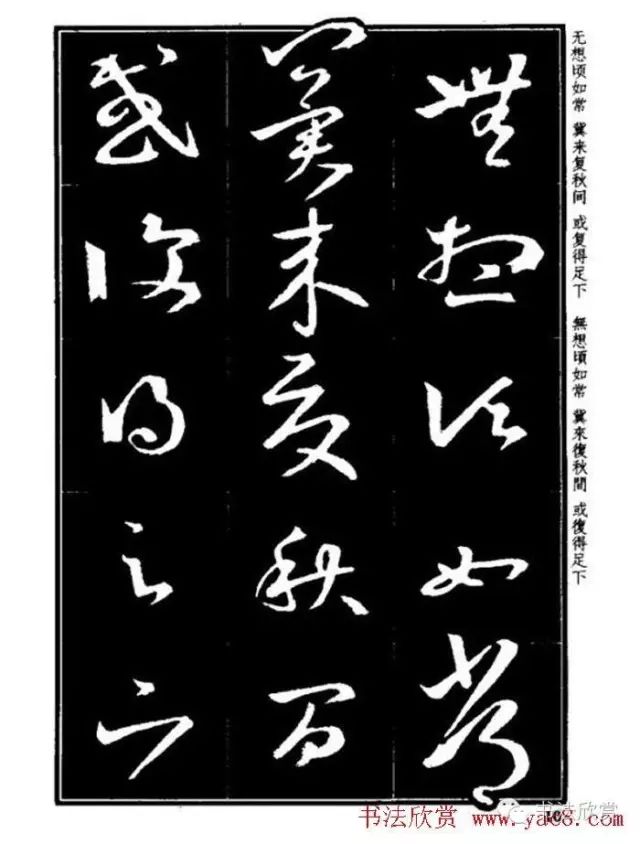 無想頃如常
冀来復秋間
或復得足下
无想顷如常 冀来复秋间 或复得足下
無想頃如常 冀來復秋間 或復得足下
书法欣赏
书法欣赏
www.yac8.com
10